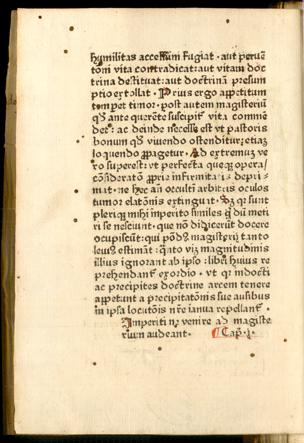 hymilitas accessum fugiat · aut perven̄
toni vita contradicat: aut vitam doc
trina destituat: aut doctrinā presum
ptio extollat · Prius ergo appetitum
tempet timor · post autem magisteriū
qḋ ante querēte suscipit᷒ vita commē
det: ac deinde necesse est vt pastoris
bonum qḋ viuendo ostenditur, etiaʒ
loquendo ꝓpagetur · Ad extremuʒ ve
ro superest: vt perfecta queqʒ opera
cōsiderato ꝓprie infirmitatis depri-
mat · ne hec an̄ occulti arbitris oculos
tumor elatōnis extinguat · Sʒ qʒ sunt
pleriqʒ mihi imperito similes qui dū meti
ri se nesciunt · que nō didicerūt docere
ↄcupiscūt: qui pōdus magisterij tanto
leuius estimāt · quāto viʒ magnitudinis
illius ignorant ab ipso · libri huius re
prehendant᷒ exordio · vt qʒ indocti
ac precipites doctrine arcem tenere
appetunt a precipitatōnis sue ausibus
in ipsa locutōis nr̄e ianua repellant᷒ ·
Imperiti ne venire ad magiste
rium audeant · ¶ Cap̄. j ·